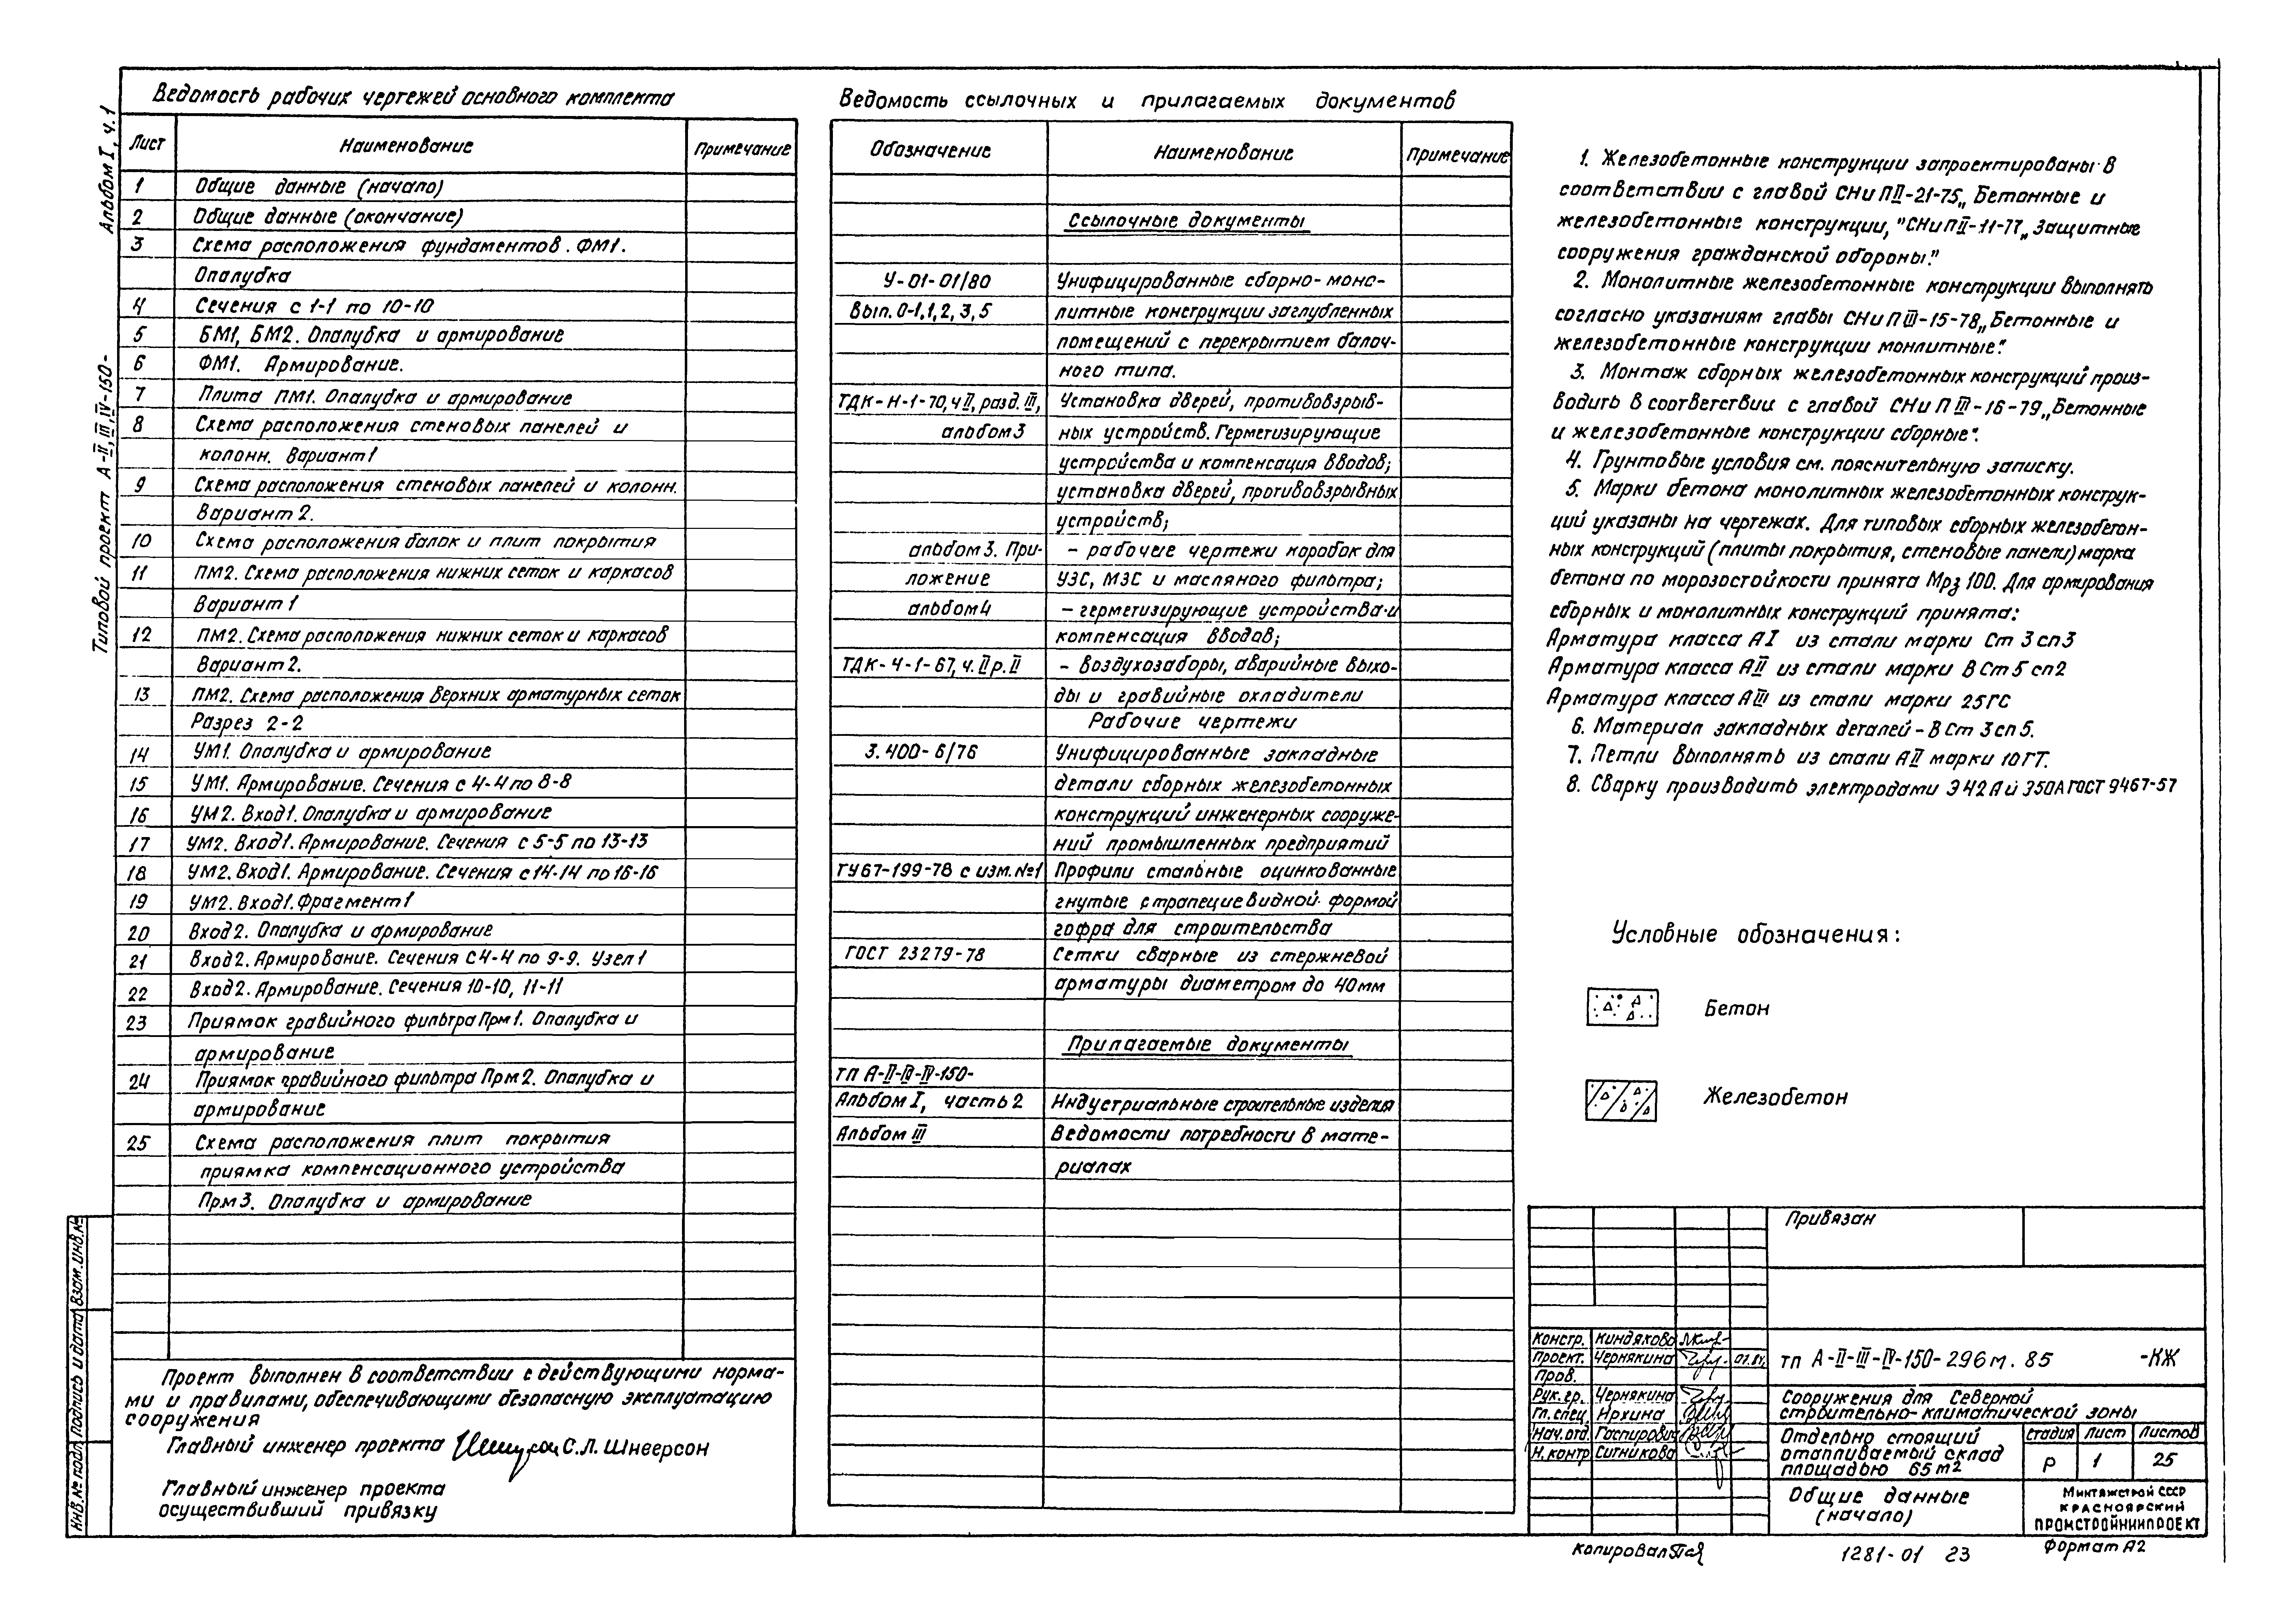 Альбом I, ч.1
Типовой проект А-II, III, IV-150-
Ведомость рабочих чертежей основного комплекта
Лист Наименование Примечание
1 Общие данные (начало)
2 Общие данные (окончание)
3 Схема расположения фундаментов. ФМ1.
Опалубка
4 Сечения с 1-1 по 10-10
5 БМ1, БМ2. Опалубка и армирование
6 ФМ1. Армирование.
7 Плита ПМ1. Опалубка и армирование
8 Схема расположения стеновых панелей и
колонн. Вариант 1
9 Схема расположения стеновых панелей и колонн.
Вариант 2.
10 Схема расположения балок и плит покрытия
11 ПМ2. Схема расположения нижних сеток и каркасов
Вариант 1
12 ПМ2. Схема расположения нижних сеток и каркасов
Вариант 2.
13 ПМ2. Схема расположения верхних арматурных сеток
Разрез 2-2
14 УМ1. Опалубка и армирование
15 УМ1. Армирование. Сечения с 4-4 по 8-8
16 УМ2. Вход 1. Опалубка и армирование
17 УМ2. Вход 1. Армирование. Сечения с 5-5 по 13-13
18 УМ2. Вход 1. Армирование. Сечения с 14-14 по 16-16
19 УМ2. Вход 1. Фрагмент 1
20 Вход 2. Опалубка и армирование
21 Вход 2. Армирование. Сечения с 4-4 по 9-9. Узел 1
22 Вход 2. Армирование. Сечения 10-10, 11-11
23 Приямок гравийного фильтра Прм 1. Опалубка и
армирование
24 Приямок гравийного фильтра Прм 2. Опалубка и
армирование
25 Схема расположения плит покрытия
приямка компенсационного устройства
Прм 3. Опалубка и армирование
Проект выполнен в соответствии с действующими норма-
ми и правилами, обеспечивающими безопасную эксплуатацию
сооружения
Главный инженер проекта С.Л. Шнеерсон
Главный инженер проекта
осуществивший привязку
Взам. инв. №
Подпись и дата
Инв. № подл.
Ведомость ссылочных и прилагаемых документов
Обозначение Наименование Примечание
Ссылочные документы
У-01-01/80 Унифицированные сборно-моно-
Вып. 0-1, 1, 2, 3, 5 литные конструкции заглубленных
помещений с перекрытием балоч-
ного типа.
ТДК-Н-1-70, ч II, разд. III, Установка дверей, противовзрыв-
альбом 3 ных устройств. Герметизирующие
устройства и компенсация вводов;
установка дверей, противовзрывных
устройств;
альбом 3. При- - рабочие чертежи коробок для
ложение УЗС, МЗС и масляного фильтра;
альбом 4 - герметизирующие устройства и
компенсация вводов;
ТДК-Ч-1-67, ч. II р. II - воздухозаборы, аварийные выхо-
ды и гравийные охладители
Рабочие чертежи
3.400-6/76 Унифицированные закладные
детали сборных железобетонных
конструкций инженерных сооруже-
ний промышленных предприятий
ТУ67-199-78 с изм. №1 Профили стальные оцинкованные
гнутые с трапециевидной формой
гофра для строительства
ГОСТ 23279-78 Сетки сварные из стержневой
арматуры диаметром до 40мм
Прилагаемые документы
тп А-II-III-IV-150-
Альбом I, часть 2 Индустриальные строительные изделия
Альбом III Ведомости потребности в мате-
риалах
1. Железобетонные конструкции запроектированы в
соответствии с главой СНиП II-21-75 „Бетонные и
железобетонные конструкции," СНиП II-11-77 „Защитные
сооружения гражданской обороны."
2. Монолитные железобетонные конструкции выполнять
согласно указаниям главы СНиП III-15-78 „Бетонные и
железобетонные конструкции монлитные".
3. Монтаж сборных железобетонных конструкций произ-
водить в соответствии с главой СНиП III-16-79 „Бетонные
и железобетонные конструкции сборные".
4. Грунтовые условия см. пояснительную записку.
5. Марки бетона монолитных железобетонных конструк-
ций указаны на чертежах. Для типовых сборных железобетон-
ных конструкций (плиты покрытия, стеновые панели) марка
бетона по морозостойкости принята Мрз 100. Для армирования
сборных и монолитных конструкций принята:
Арматура класса АI из стали марки Ст 3 сп3
Арматура класса АII из стали марки ВСт 5 сп2
Арматура класса АIII из стали марки 25ГС
6. Материал закладных деталей - ВСт 3 сп 5.
7. Петли выполнять из стали АII марки 10ГТ.
8. Сварку производить электродами Э42А и Э50А ГОСТ 9467-57
Условные обозначения:
Бетон
Железобетон
Привязан
Констр. Киндякова
Проект. Чернякина 07.84
Пров.
Рук. гр. Чернякина
Гл. спец. Ярхина
Нач. отд. Гаспирович
Н. контр Ситникова
тп А-II-III-IV-150-296м.85 -КЖ
Сооружения для Северной
строительно-климатической зоны
Отдельно стоящий
отапливаемый склад
площадью 65 м2
стадия лист листов
Р 1 25
Общие данные
(начало)
Минтяжстрой СССР
КРАСНОЯРСКИЙ
ПРОМСТРОЙНИИПРОЕКТ
Копировал
1281-01 23
Формат А2